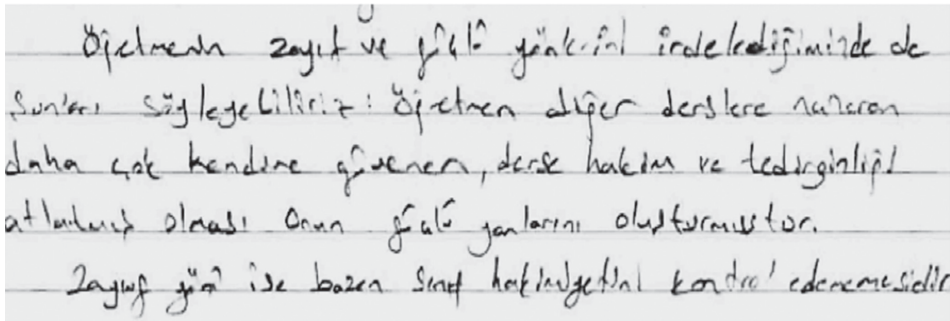 Öğretmenin zayıf ve güçlü yönlerini irdelediğimizde de
şunları söyleyebiliriz: Öğretmen diğer derslere nazaran
daha çok kendine güvenen, derse hakim ve tedirginliği
atlatmış olması onun güçlü yanlarını oluşturmuştur.
Zayıf yönü ise bazen sınıf hakimiyetini kontrol edememesidir